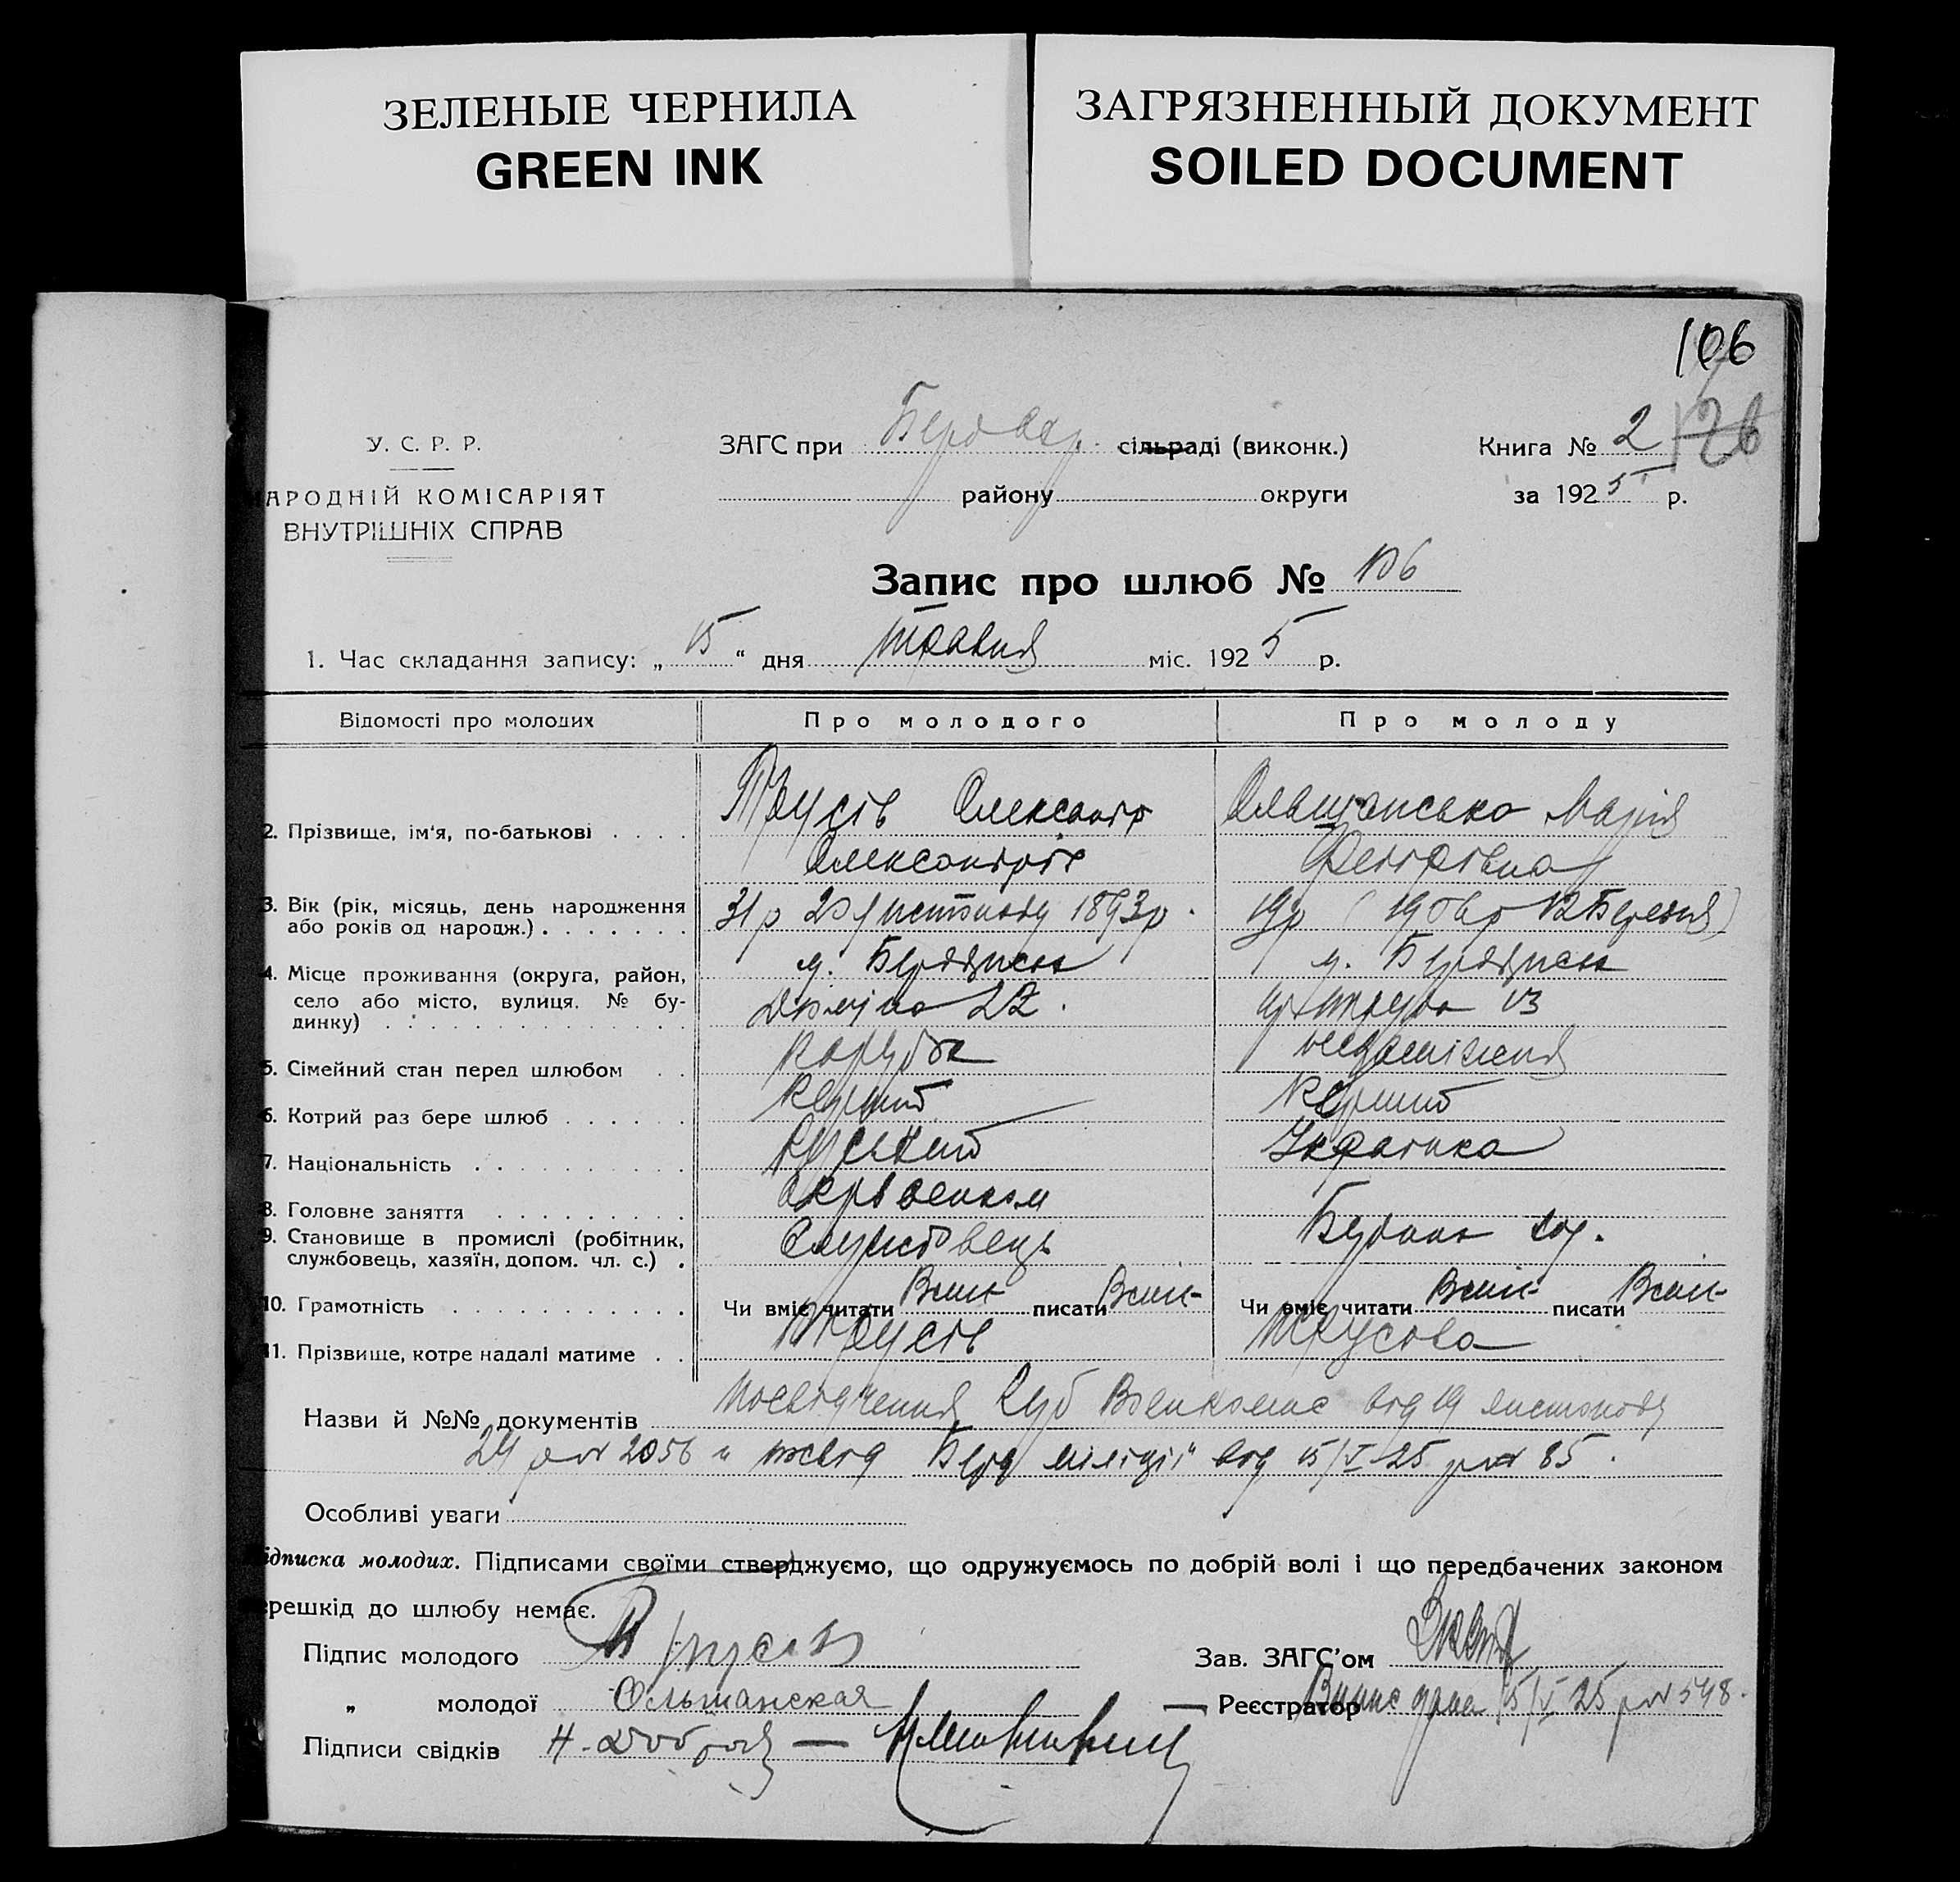 ЗЕЛЕНЫЕ ЧЕРНИЛА
GREEN INK
ЗАГРЯЗНЕННЫЙ ДОКУМЕНТ
SOILED DOCUMENT
106
126
У. С. Р. Р.
НАРОДНІЙ КОМІСАРІЯТ
ВНУТРІШНІХ СПРАВ
ЗАГС при сільраді (виконк.)
району округи
Книга № 2
за 1925 р.
Запис про шлюб № 106
1. Час складання запису: „15“ дня травня міс. 1925 р.
Відомості про молодих Про молодого Про молоду
2. Прізвище, ім'я, по-батькові . . . . Трусів Олександр Ольшанська Марія
3. Вік (рік, місяць, день народження або років од народж.) . . . . . . . 31 р 20 листопаду 1893р. 19р (1906 р 12 Березня)
4. Місце проживання (округа, район, село або місто, вулиця. № будинку) . . . . . . . . . . . . . . м. Бердянськ м. Бердянськ
5. Сімейний стан перед шлюбом . . парубок
6. Котрий раз бере шлюб . . . . . . перший перший
7. Національність . . . . . . . . . . руський Українка
8. Головне заняття . . . . . . . . . окрвоенком
9. Становище в промислі (робітник, службовець, хазяїн, допом. чл. с.) . Службовець
10. Грамотність . . . . . . . . . . . Чи вміє читати Вміє писати Вміє Чи вміє читати Вміє писати Вміє
11. Прізвище, котре надалі матиме . . Трусів Трусова
Назви й №№ документів посвідчення від 19 листопаду
24 р № 2056 міліції від 15/V-25 р № 85.
Особливі уваги
Підписка молодих. Підписами своїми стверджуємо, що одружуємось по добрій волі і що передбачених законом
перешкід до шлюбу немає.
Підпис молодого Трусов
Зав. ЗАГС'ом
„ молодої Ольшанская
Реєстратор 15/V 25 р № 548.
Підписи свідків